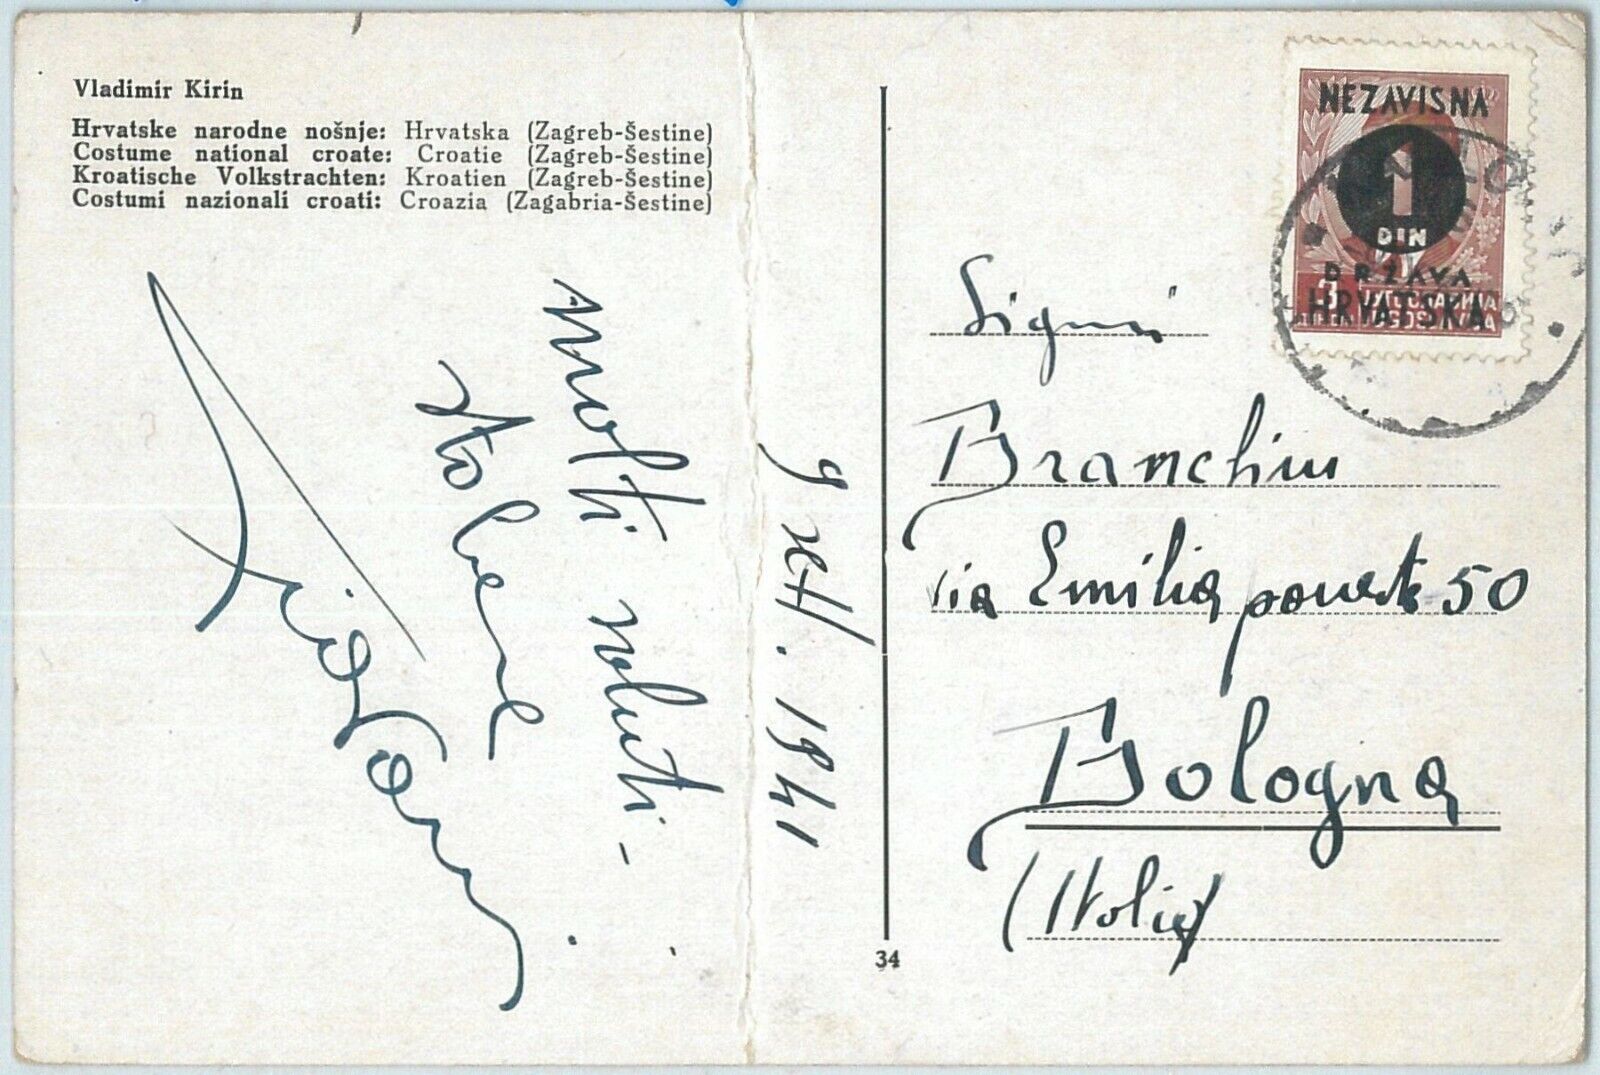 Vladimir Kirin
Hrvatske narodne nošnje: Hrvatska (Zagreb-Šestine)
Costume national croate: Croatie (Zagreb-Šestine)
Kroatische Volkstrachten: Kroatien (Zagreb-Šestine)
Costumi nazionali croati: Croazia (Zagabria-Šestine)
9 sett. 1941
molti saluti -
sto bene
NEZAVISNA
1
DIN
DRŽAVA
HRVATSKA
3
Branchini
via Emilia ponente 50
Bologna
(Italia)
34